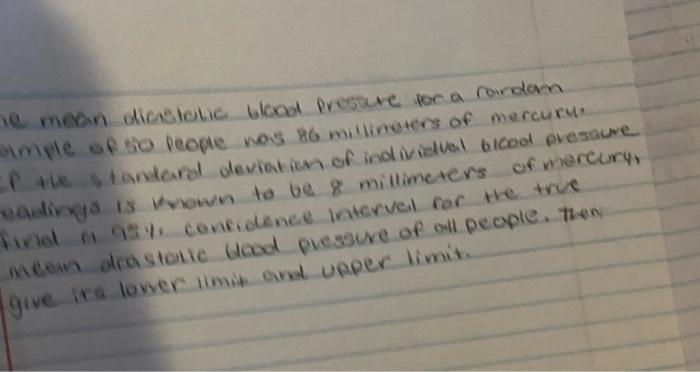 he mean diastolic blood pressure for a random
ample of 50 people was 86 millimeters of mercury.
If the standard deviation of individual blood pressure
eadings is known to be 8 millimeters of mercury,
find a 95% confidence interval for the true
mean diastolic blood pressure of all people. Then
give its lower limit and upper limit.